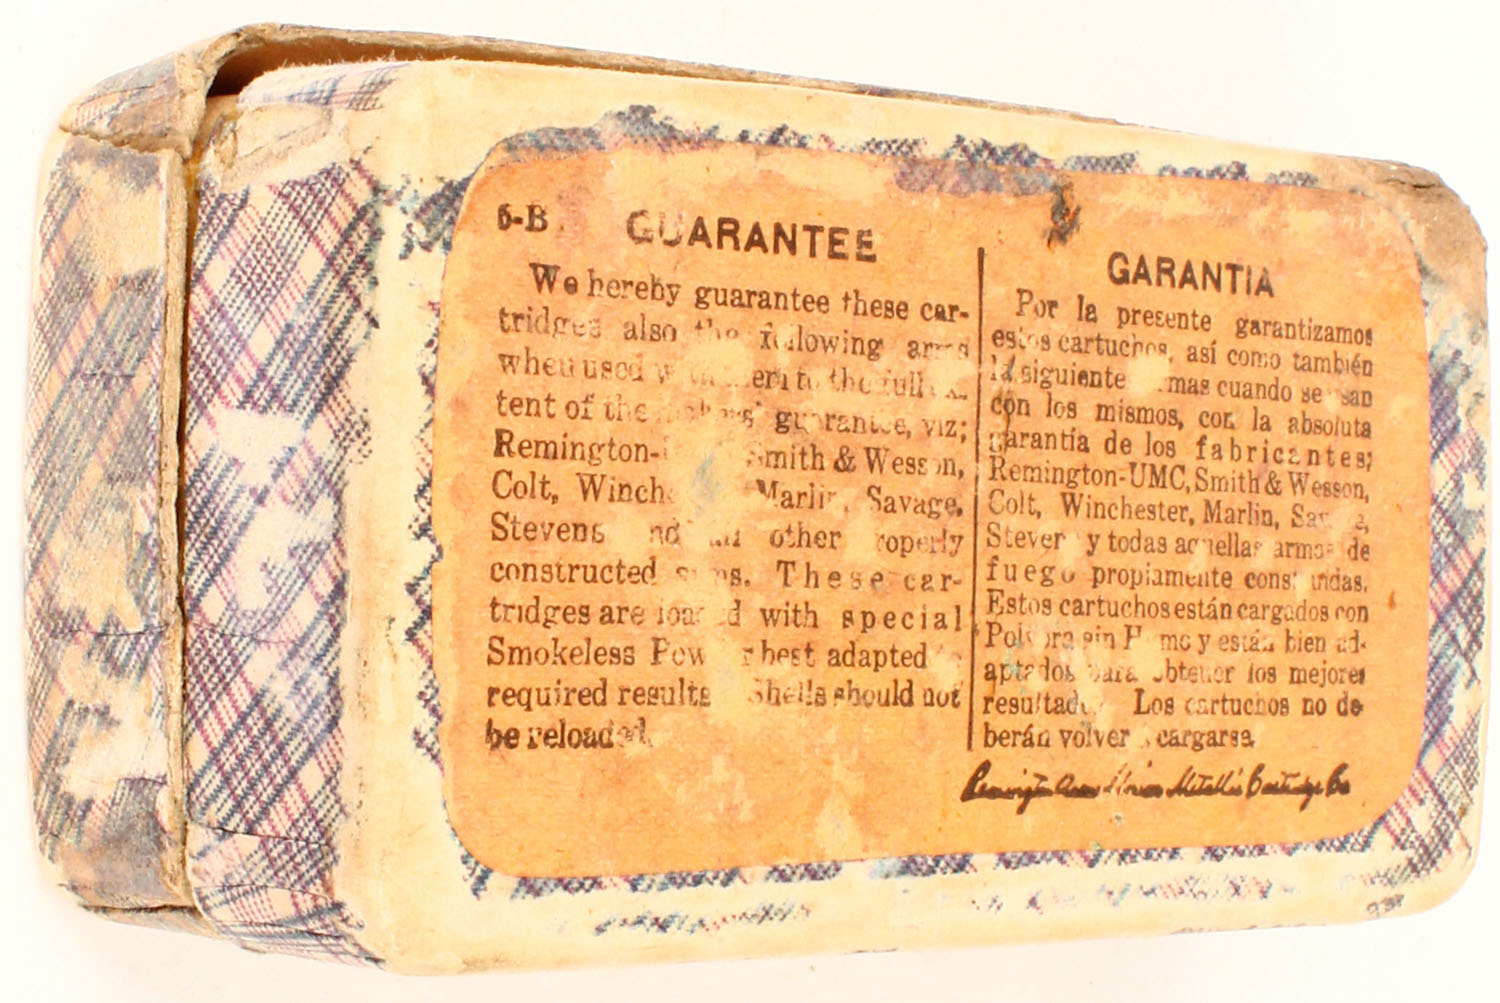 6-B GUARANTEE
We hereby guarantee these car-
tridges also the following arms
when used them to the full
tent of the makers' guarantee, viz;
Remington- Smith & Wesson,
Colt, Marlin, Savage,
Stevens and all other properly
constructed These car-
tridges are loaded with special
Smokeless Powder best adapted
required results Shells should not
be reloaded.
GARANTIA
Por la presente garantizamos
estos cartuchos, así como también
siguiente cuando se
con los mismos, con la absoluta
garantía de los fabricantes;
Remington-UMC, Smith & Wesson,
Colt, Winchester, Marlin, Savage,
y todas aquellas armas de
fuego propiamente
Estos cartuchos están cargados con
Polvora sin Humo y están bien ad-
aptados para obtener los mejores
resultados. Los cartuchos no de
berán volver cargarse
Remington Arms Union Metallic Cartridge Co